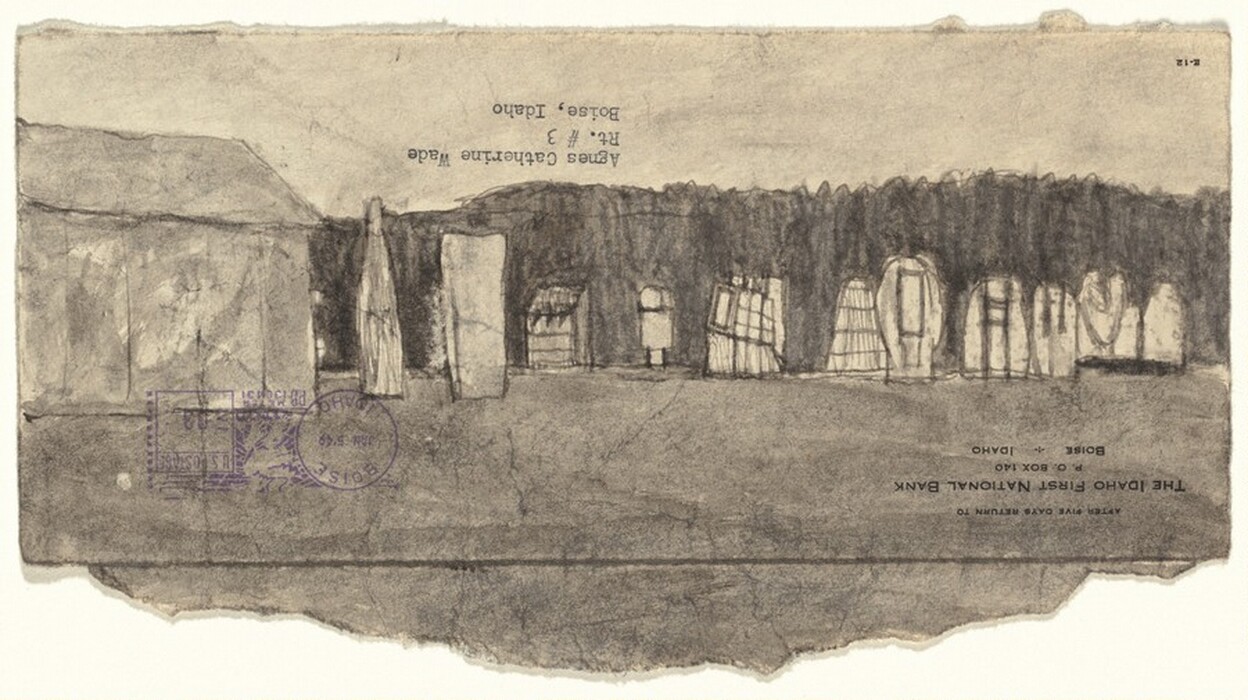 E-12
Agnes Catherine Wade
Rt. # 3
Boise, Idaho
AFTER FIVE DAYS RETURN TO
THE IDAHO FIRST NATIONAL BANK
P. O. BOX 140
BOISE ÷ IDAHO
BOISE
IDAHO
U.S.POSTAGE